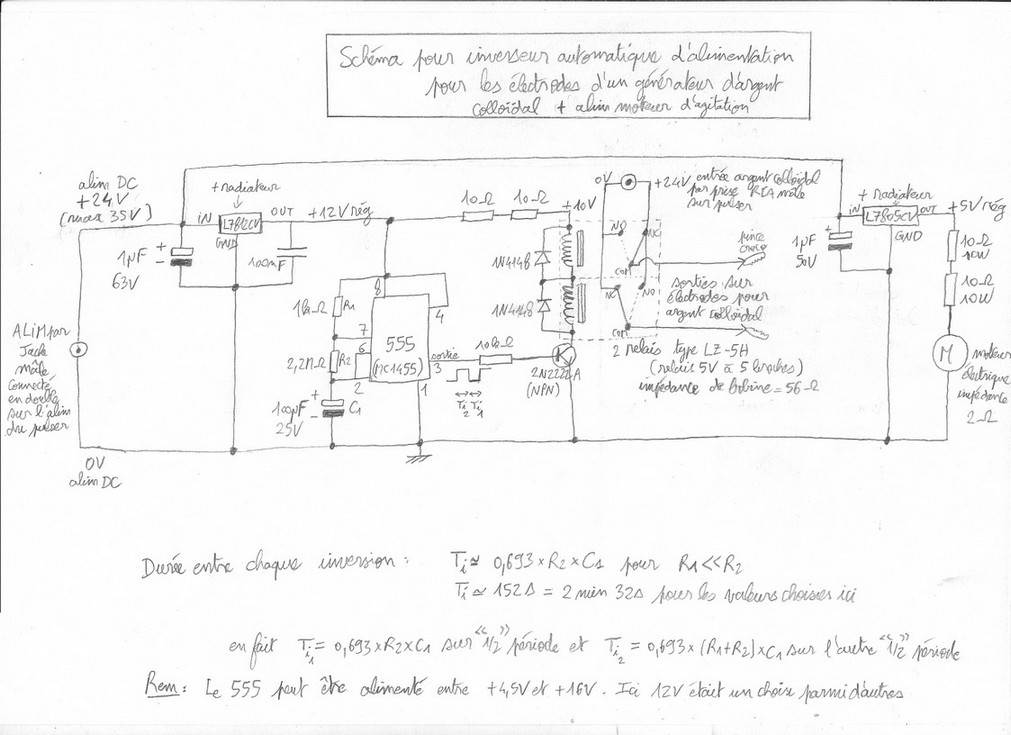 Schéma pour inverseur automatique d'alimentation
pour les électrodes d'un générateur d'argent
colloïdal + alim moteur d'agitation
alim DC
+24V
(max 35V)
+ radiateur
IN
L7812CV
OUT
GND
+12V rég
1µF
63V
+
-
100nF
10Ω
10Ω
+10V
0V
+24V
entrée argent colloïdal
par prise RCA mâle
sur pulser
+ radiateur
IN
L7805CV
OUT
GND
+5V rég
1µF
50V
+
10Ω
10W
10Ω
10W
M
moteur
électrique
impédance
2Ω
1N4148
1N4148
NO
NC
COM
NC
NO
COM
pince
croco
sorties sur
électrodes pour
argent colloïdal
2 relais type LZ-5H
(relais 5V à 5 broches)
impédance de bobine = 56Ω
1kΩ
R1
2,2MΩ
R2
8
4
7
6
2
1
555
(MC1455)
sortie
3
10kΩ
Ti2
Ti1
2N2222A
(NPN)
100µF
25V
C1
+
-
ALIM par
Jack
mâle
connecté
en double
sur l'alim
du pulser
0V
alim DC
Durée entre chaque inversion : Ti ≃ 0,693 x R2 x C1 pour R1<<R2
Ti ≃ 152s = 2 min 32s pour les valeurs choisies ici
en fait Ti1 = 0,693 x R2 x C1 sur "1/2" période et Ti2 = 0,693 x (R1+R2) x C1 sur l'autre "1/2" période
Rem : Le 555 peut être alimenté entre +4,5V et +16V. Ici 12V était un choix parmi d'autres